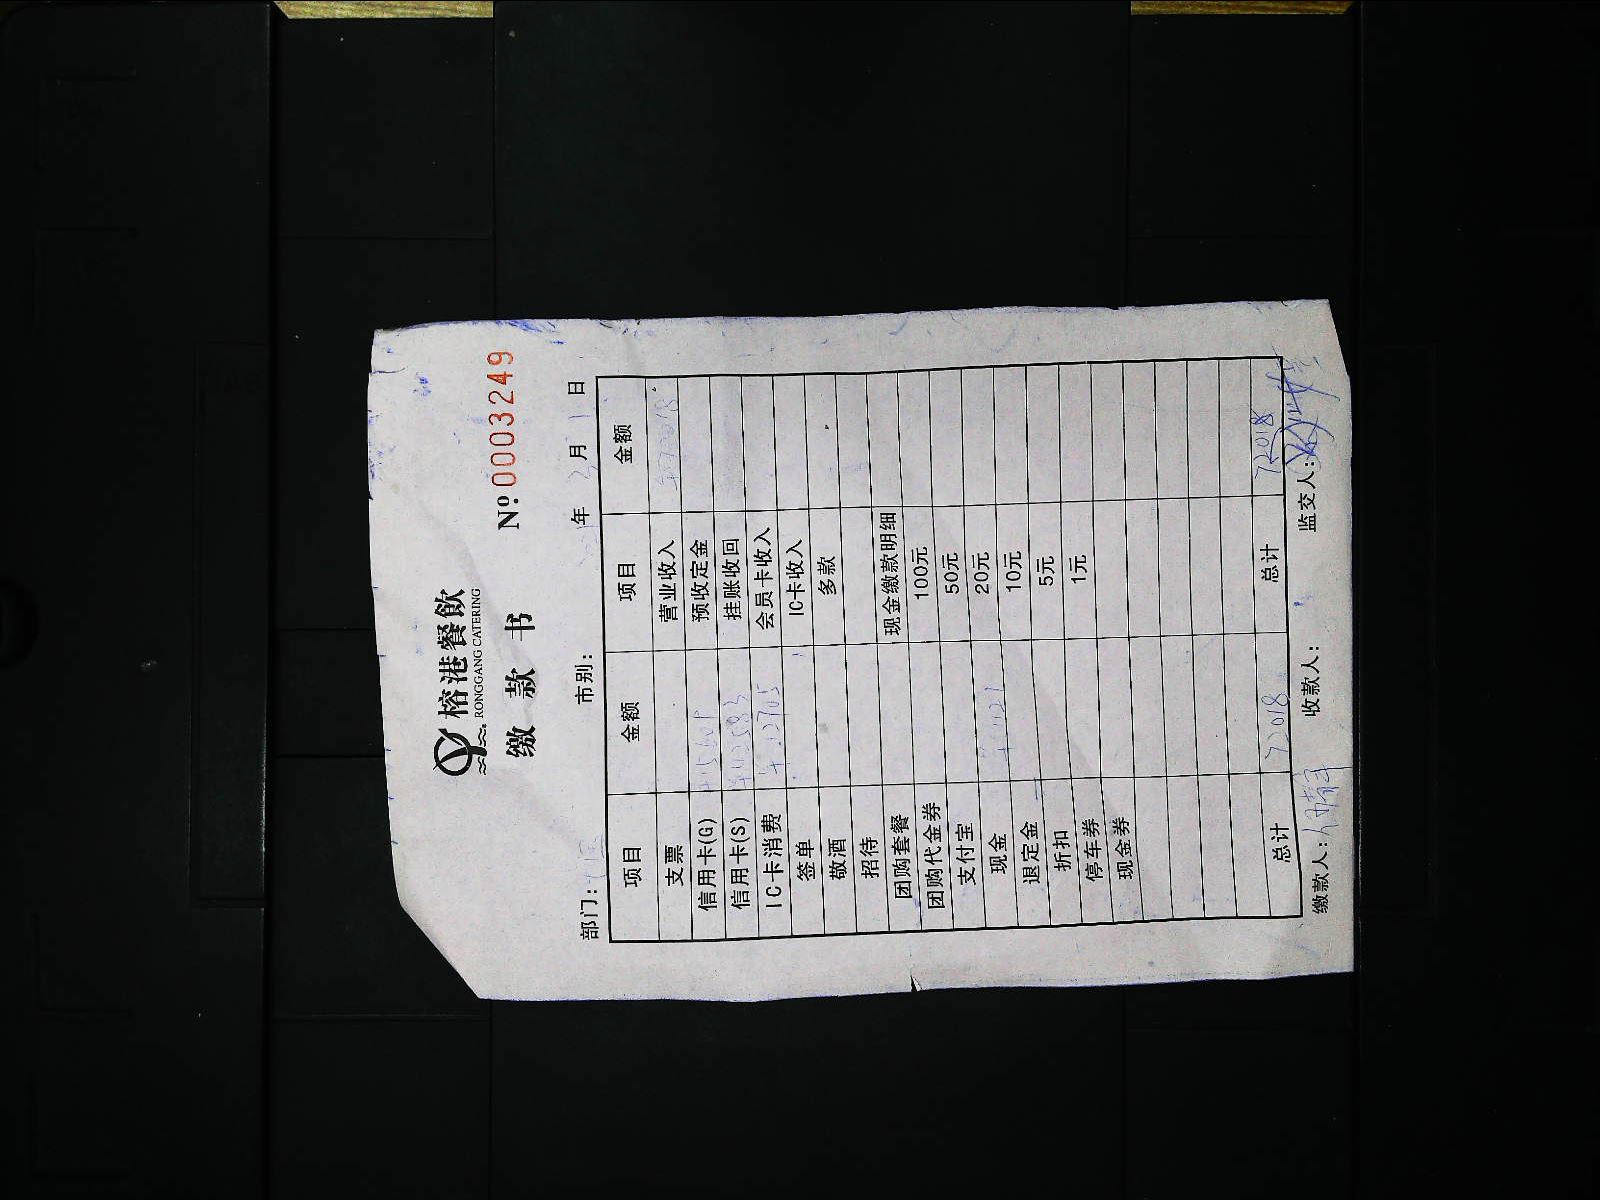 榕港餐飲
RONGGANG CATERING
缴 款 书
Nº 0003249
部门: 市别: 年 3月 1日
项目 金额 项目 金额
支票 营业收入 ¥72018
信用卡(G) 预收定金
信用卡(S) ¥42583 挂账收回
IC卡消费 ¥12705 会员卡收入
签单 IC卡收入
敬酒 多款
招待
团购套餐 现金缴款明细
团购代金券 100元
支付宝 50元
现金 20元
退定金 10元
折扣 5元
停车券 1元
现金券
总计 72018 总计 72018
缴款人: 收款人: 监交人: